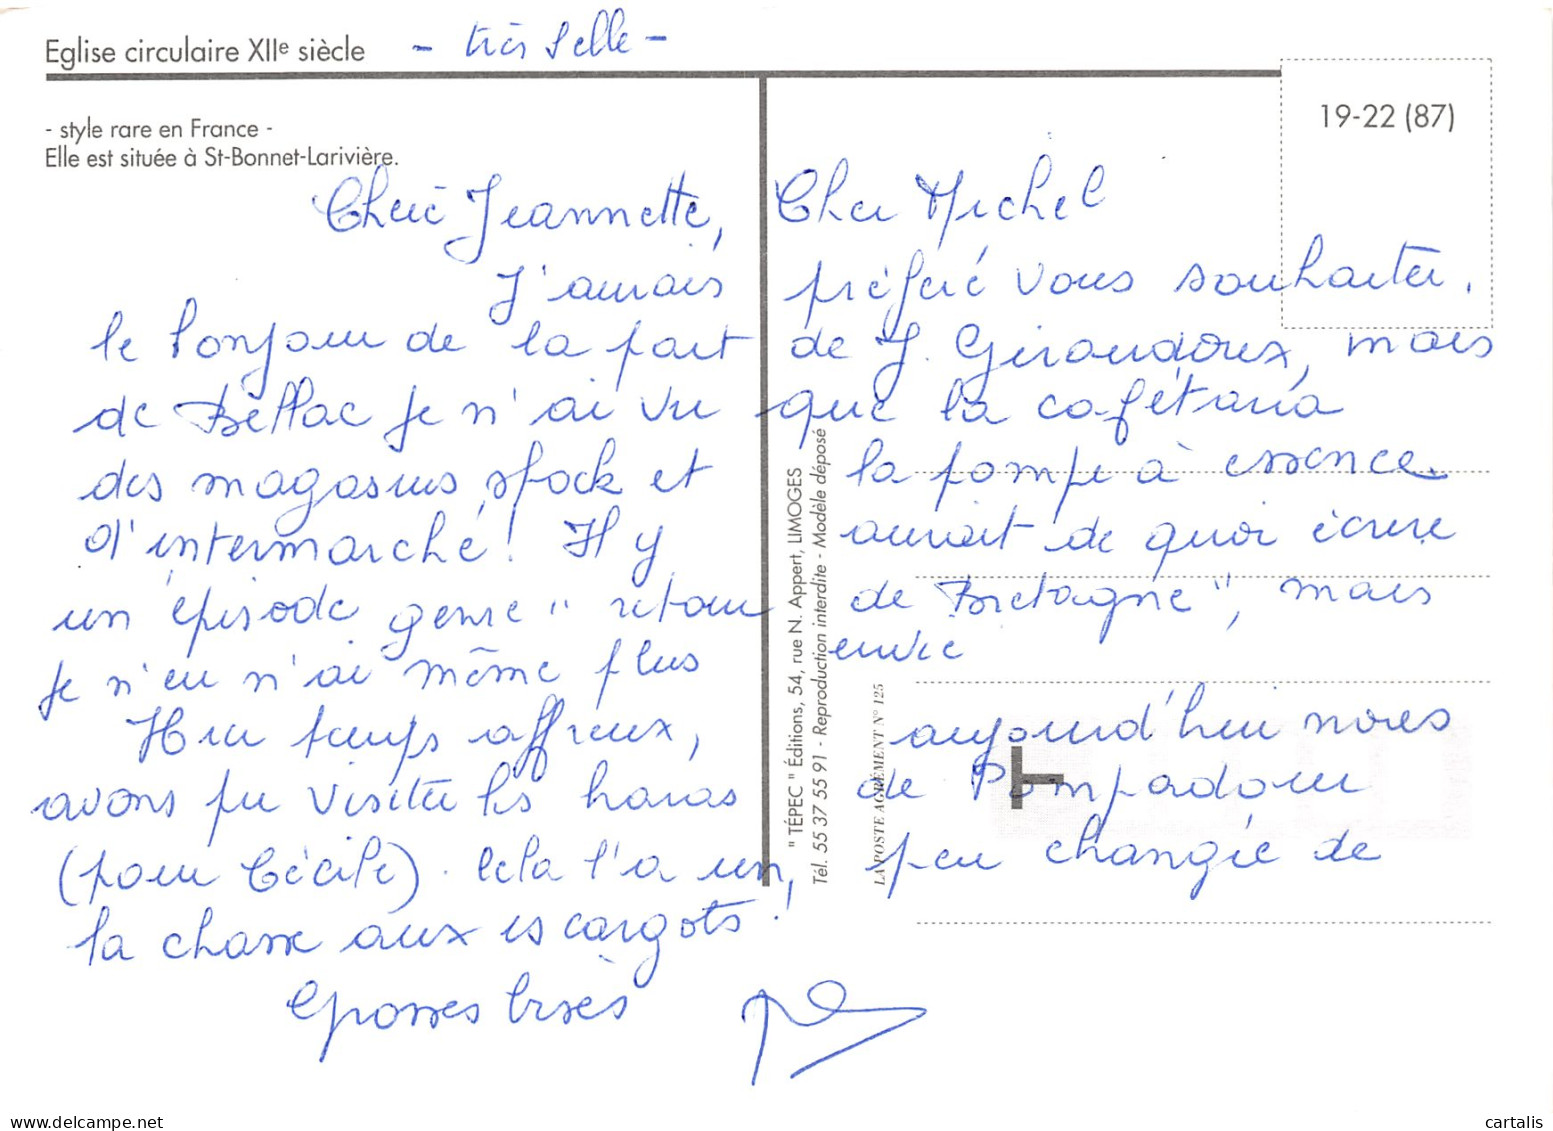 Eglise circulaire XIIe siècle - très belle -
- style rare en France -
Elle est située à St-Bonnet-Larivière.
19-22 (87)
Chère Jeannette, Cher Michel
J'aurais préféré vous souhaiter,
le bonjour de la part de J. Giraudoux, mais
de Bellac je n'ai vu que la cafétaria
des magasins, stock et la pompe à essence
d'intermarché! Il y aurait de quoi écrire
un épisode genre "retour de Bretagne", mais
je n'en n'ai même plus envie
Hier temps affreux, aujourd'hui nous
avons pu visiter les haras de Pompadour
(pour Cécile). Cela l'a un, peu changée de
la chasse aux escargots!
Grosses bises
" TÉPEC " Éditions, 54, rue N. Appert, LIMOGES
Tél. 55 37 55 91 - Reproduction interdite - Modèle déposé
LA POSTE AGRÉMENT N° 125
cartalis